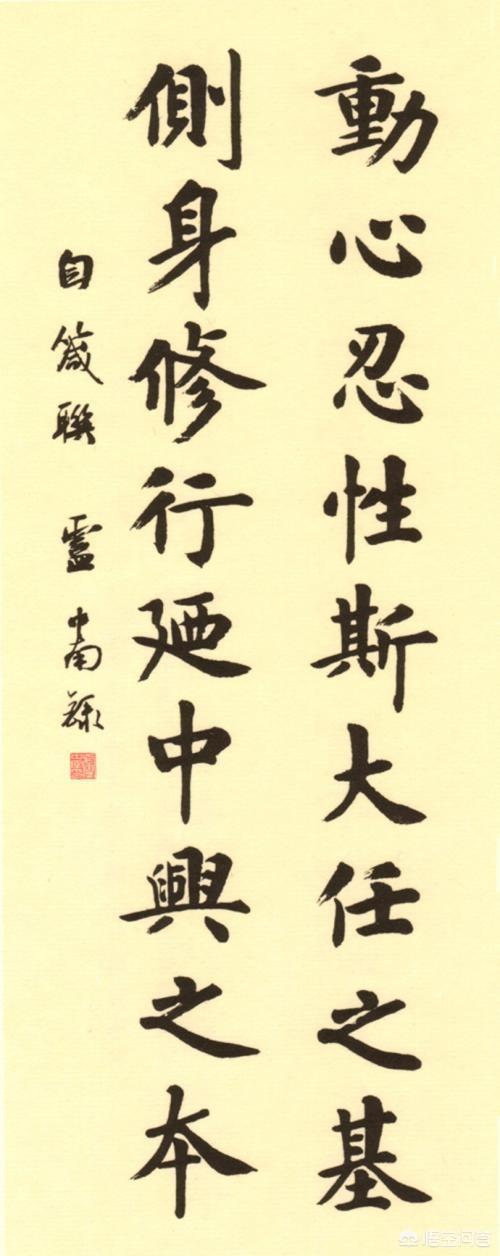 動心忍性斯大任之基
側身修行廼中興之本
自箴聯 盧中南録
悟空问答